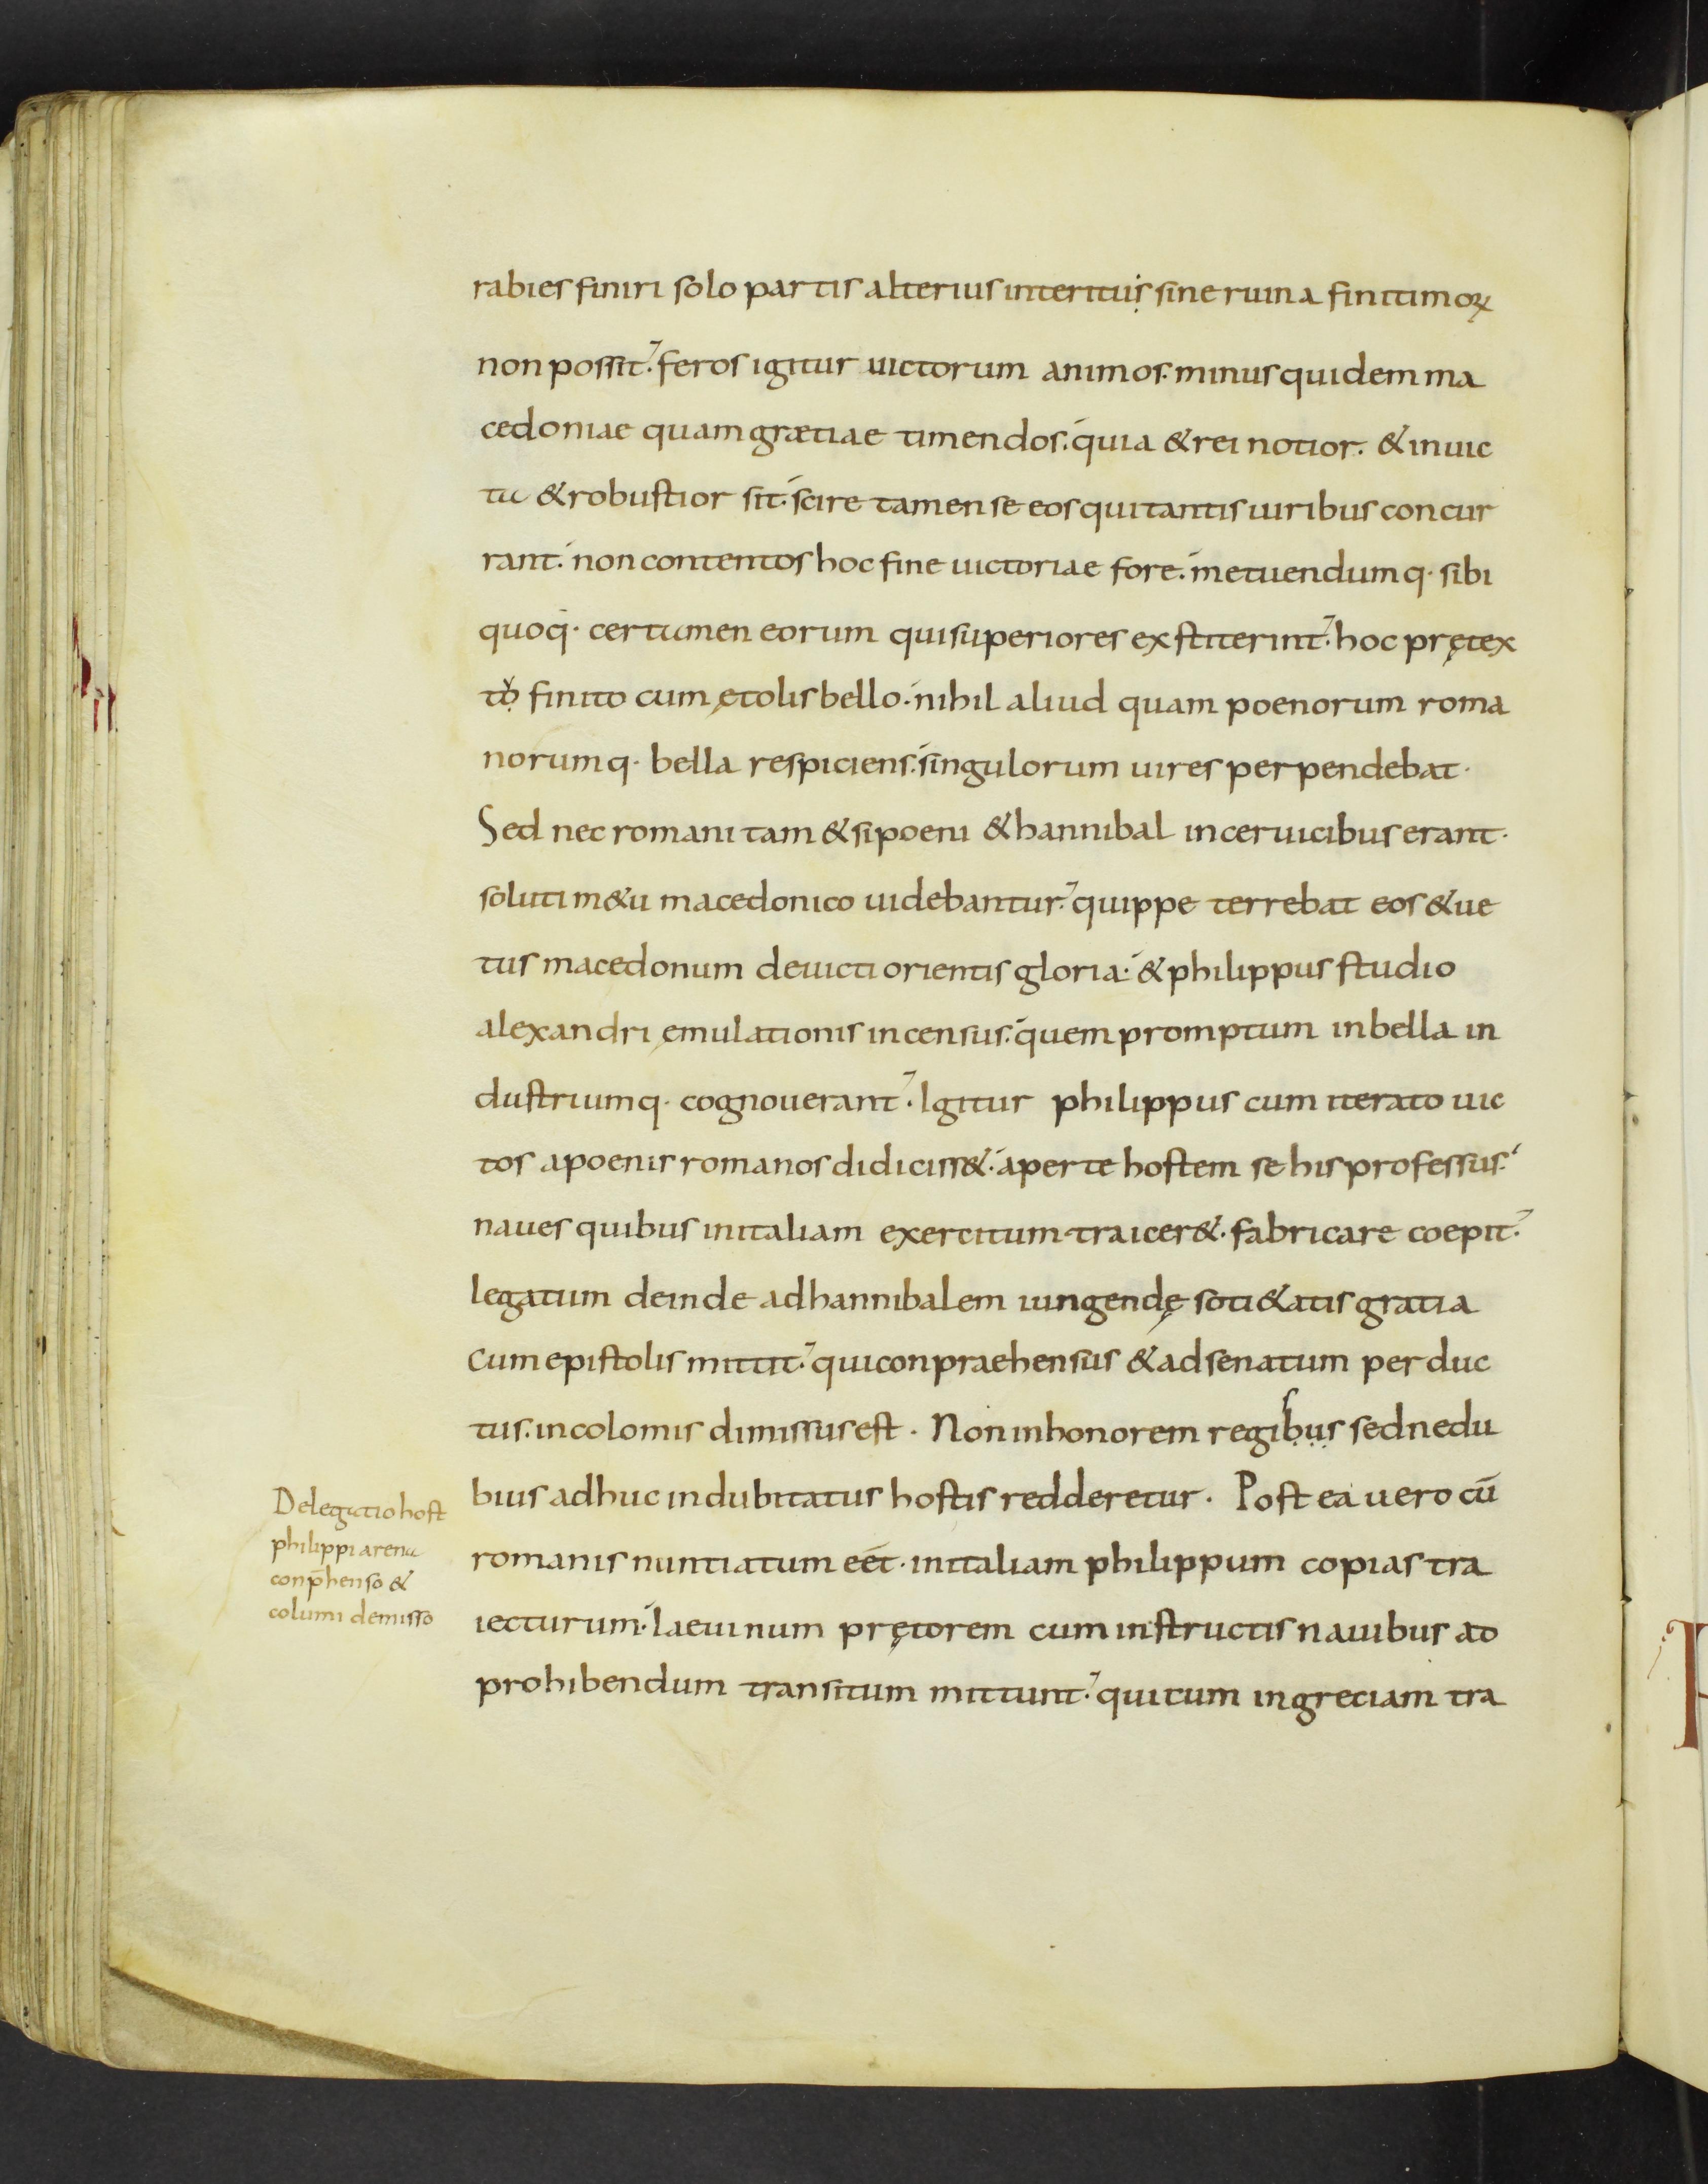 rabies finiri solo partis alterius interitus sine ruina finitimoꝝ
non possit. feros igitur uictorum animos. minus quidem ma
cedoniae quam grætiae timendos. quia & rei notior. & in uic
tu & robustior sit. scire tamen se eos qui tantis uiribus concur
rant. non contentos hoc fine uictoriae fore. metuendumq· sibi
quoq· certamen eorum qui superiores exstiterint. hoc prętex
to finito cum ętolis bello. nihil aliud quam poenorum roma
norumq· bella respiciens. singulorum uires perpendebat·
Sed nec romani tam &si poeni & hannibal in ceruicibus erant·
soluti m&u macedonico uidebantur. quippe terrebat eos & ue
tus macedonum deuicti orientis gloria. & philippus studio
alexandri ęmulationis incensus. quem promptum in bella in
dustriumq· cognouerant. Igitur philippus cum iterato uic
tos a poenis romanos didiciss&. aperte hostem se his professus.
naues quibus in italiam exercitum traicer&. fabricare coepit.
legatum deinde ad hannibalem iungendę soti&atis gratia
cum epistolis mittit. qui conpraehensus & ad senatum perduc
tus. incolomis dimissus est. Non in honorem regibus sed ne du
bius adhuc indubitatus hostis redderetur. Post ea uero cū
romanis nuntiatum eēt. in italiam philippum copias tra
iecturum. laeuinum prętorem cum instructis nauibus ad
prohibendum transitum mittunt. qui cum in greciam tra
Delegatio host
philippi arena
conp̄henso &
columi demisso